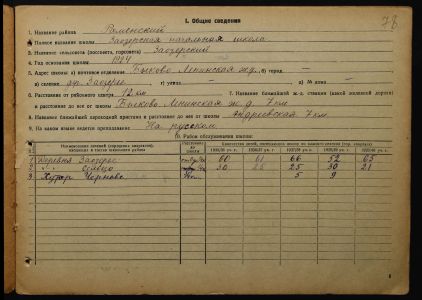 78
I. Общие сведения
1. Название района Раменский
2. Полное название школы Заозерская начальная школа
3. Название сельсовета (поссовета, горсовета) Заозерский
4. Год основания школы 1924
5. Адрес школы: а) почтовое отделение Быково Ленинская ж.д. б) город —
в) селение Заозерье г) улица — д) № дома —
6. Расстояние от районного центра 12 км 7. Название ближайшей ж.-д. станции (какой железной дороги)
и расстояние до нее от школы Быково Ленинская ж д 7 км
8. Название ближайшей пароходной пристани и расстояние до нее от школы Андреевская 7 км
9. На каком языке ведется преподавание На русском
10. Район обслуживания школы:
1 Деревня Заозерье 60 61 66 52 65
2 30 25 25 30 21
3 Хутор 5 9